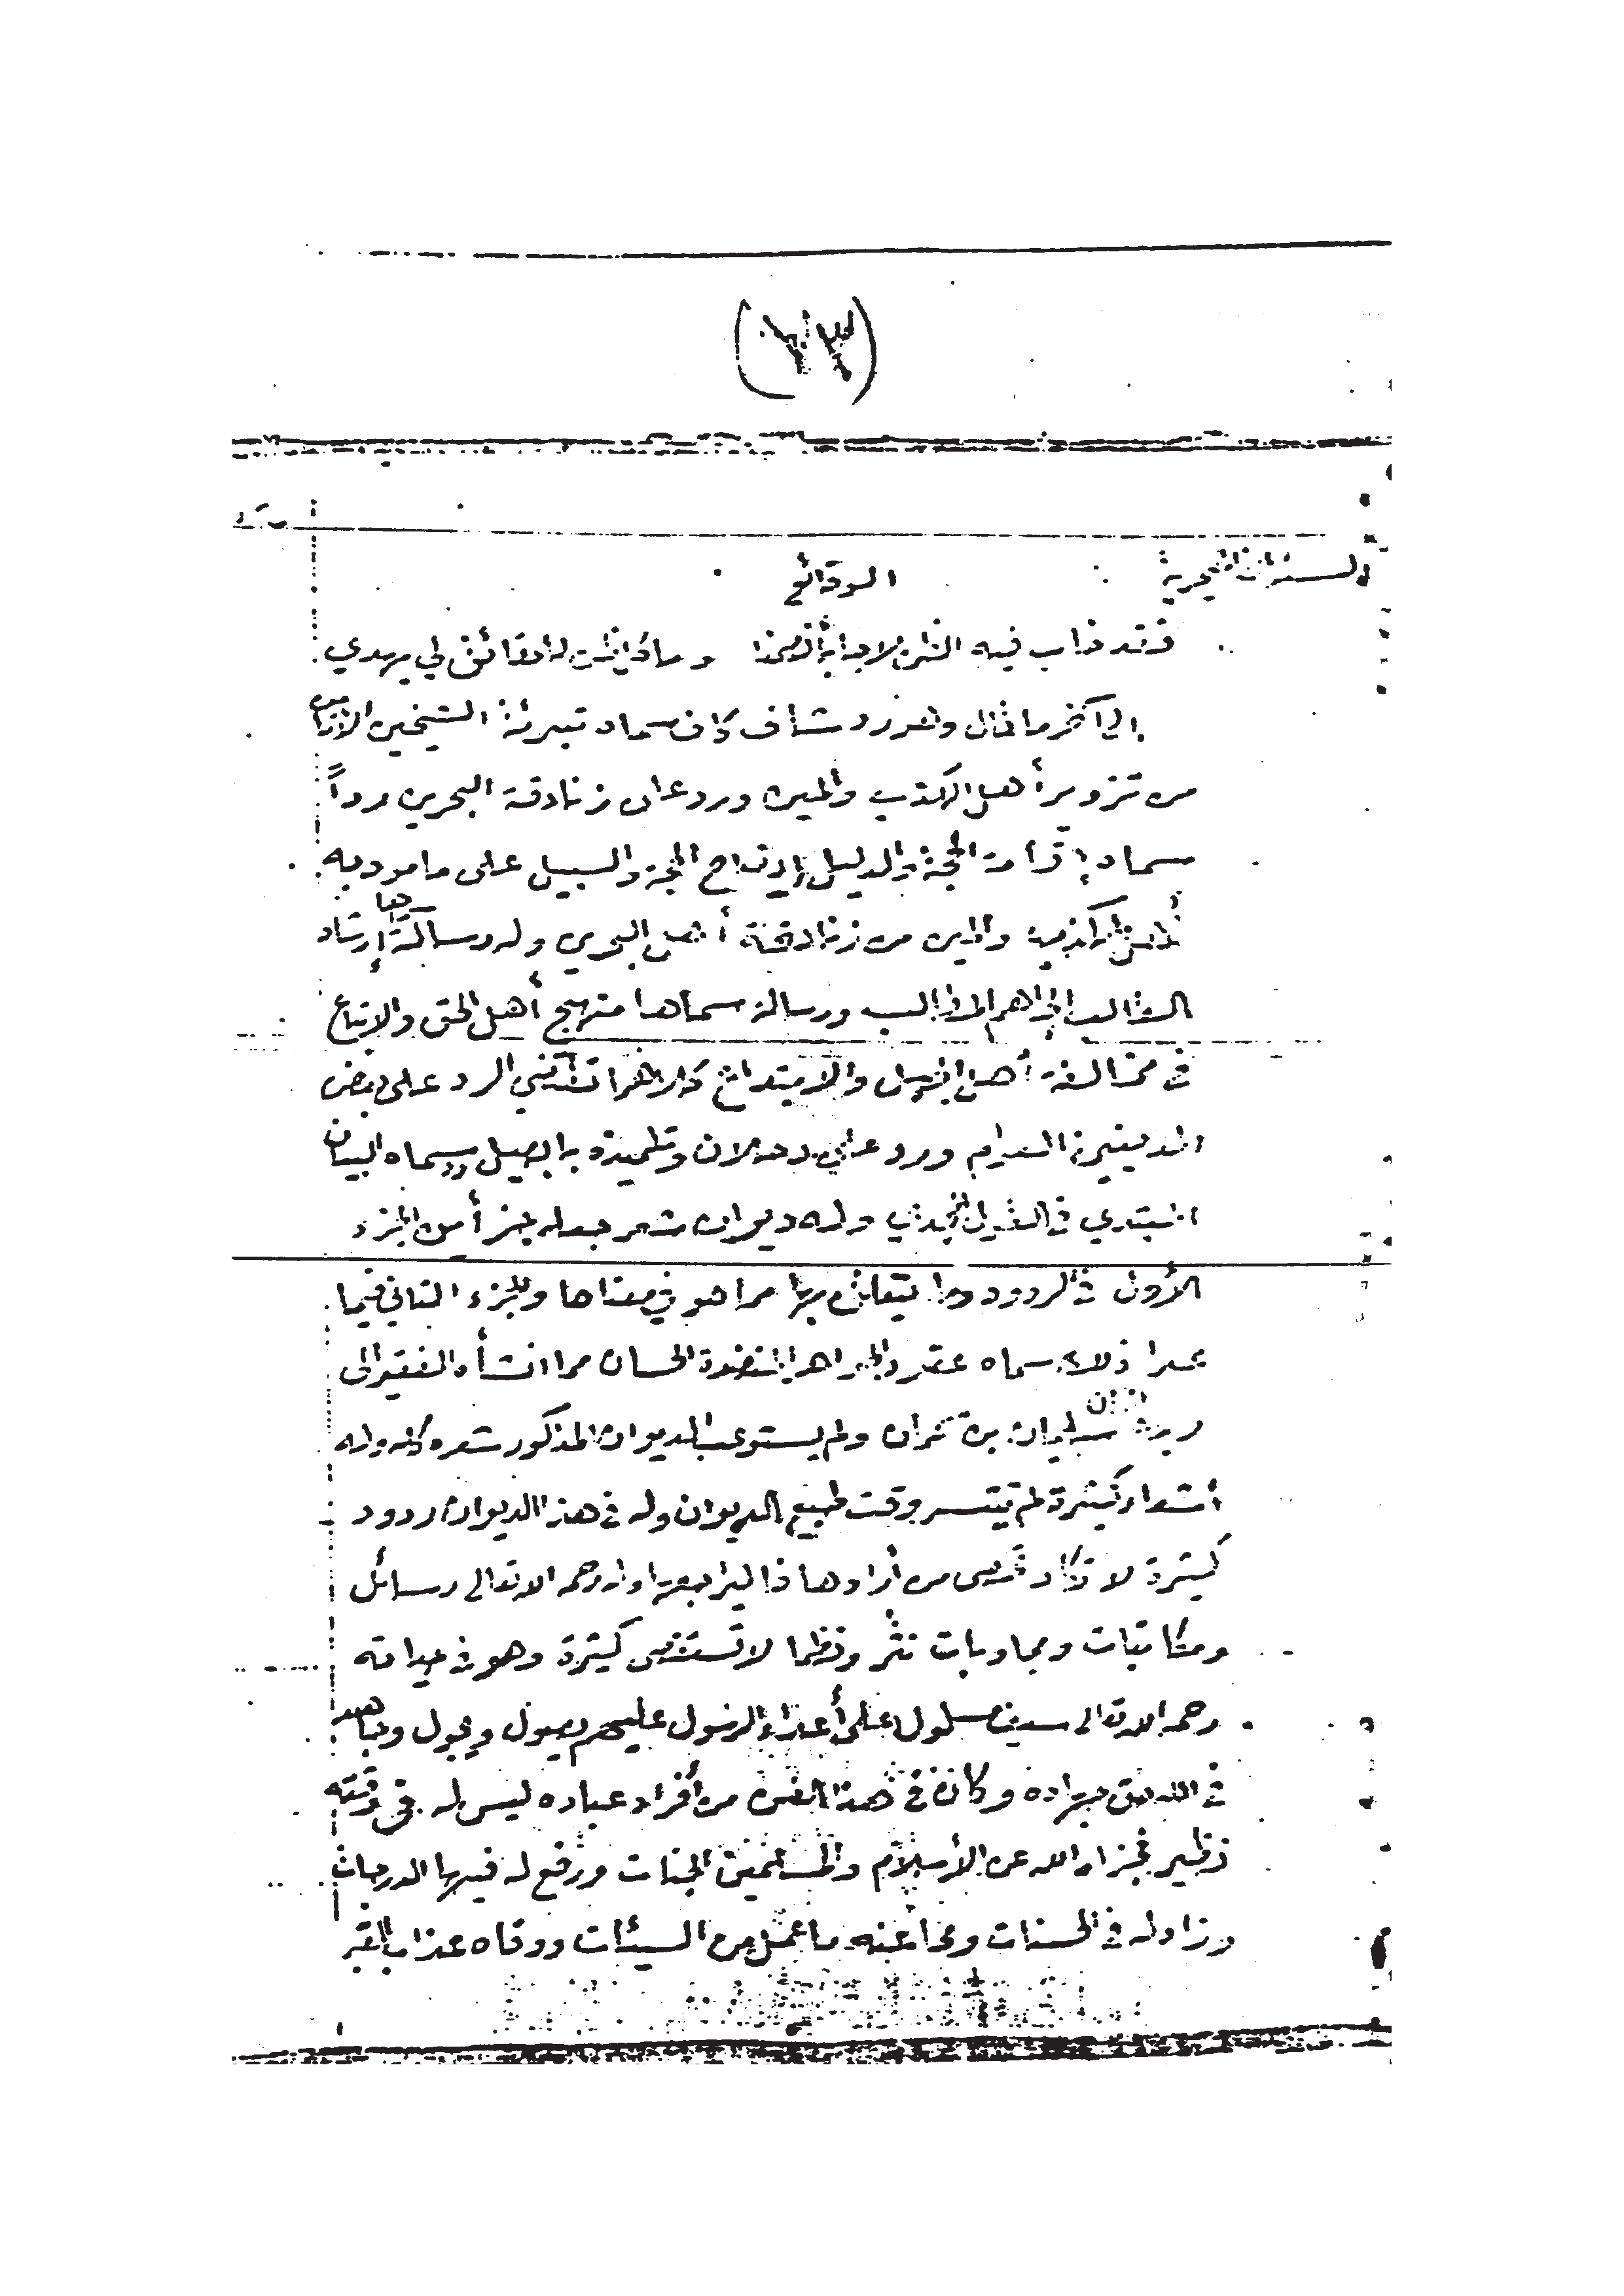 (٢٣)
السنوات الهجرية الوقائع
فقد ذاب فيه وما كانت الدقائق لي يهدي
إلى آخر ما قال وله رد شاف كاف سماه تبرئة الشيخين الإمامين
من تزوير أهل الكذب والمين ورد على زنادقة البحرين رداً
سماه إقامة الحجة والدليل وإيضاح المحجة والسبيل على ما موه به
أهل الكذب والمين من زنادقة أهل البحرين وله رسالة سماها إرشاد
الطالب إلى أهم المطالب ورسالة سماها منهج أهل الحق والاتباع
في مخالفة أهل الجهل والابتداع كلاهما تقتضي الرد على بعض
المدينين الطغام ورد على دحلان وتلميذه بابصيل وسماه البيان
المبدي في القول المجدي وله ديوان شعر جعله جزأين الجزء
الأول في الردود وما يتعلق بها مما هو في معناها والجزء الثاني فيما
عدا ذلك سماه عقود الجواهر المنضدة الحسان مما أنشأه الفقير إلى
ربه سليمان بن سحمان ولم يستوعب الديوان المذكور شعره كله وله
أشعار كثيرة لم تتيسر وقت طبع الديوان وله في هذا الديوان ردود
كثيرة لا تكاد تحصى من أرادها فاليراجعه وله رحمه الله تعالى رسائل
ومكاتبات ومجاوبات نثر ونظما لا تستقصى كثيرة وهو في حياته
رحمه الله تعالى سيف مسلول على أعداء الرسول عليهم يصول ويجول وجاهد
في الله حق جهاده وكان في هذا الفن من أفراد عباده ليس له في وقته
نظير فجزاه الله عن الأسلام والمسلمين الجنات ورفع له فيها الدرجات
وزاد له في الحسنات ومحا عنه ما عمل من السيئات ووقاه عذاب القبر